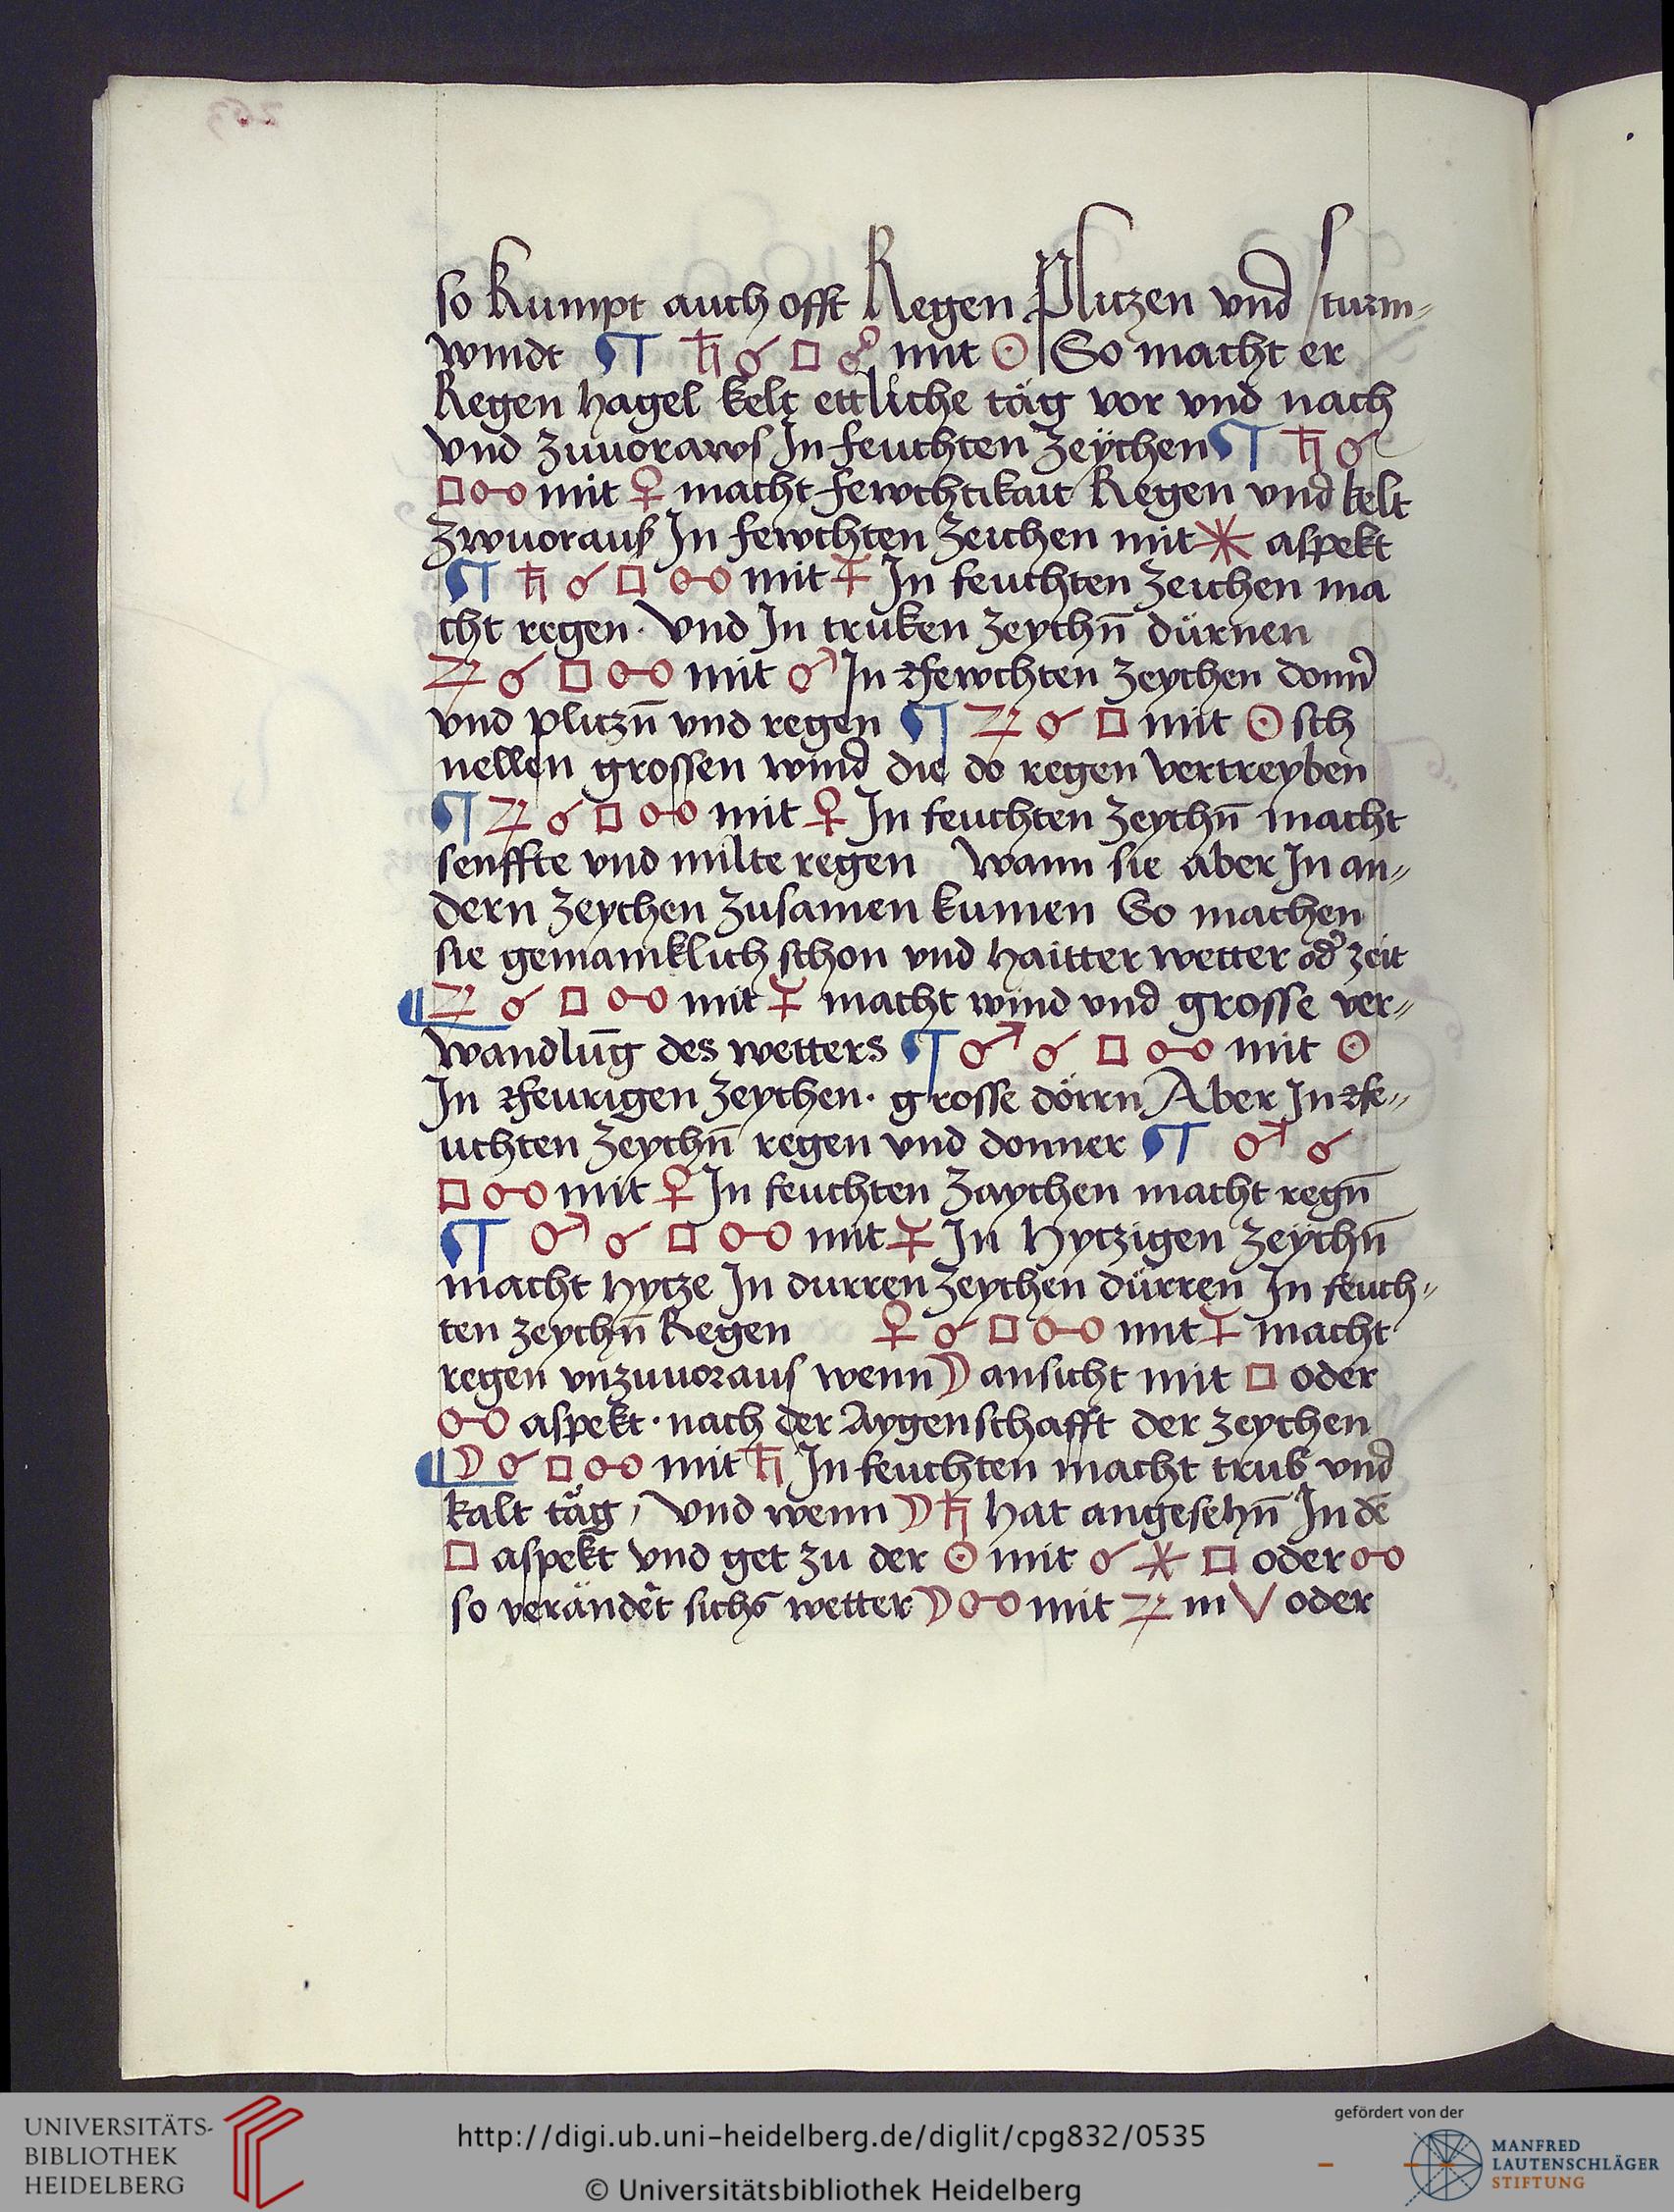 so kumpt auch offt Regen Plitzen vnd sturm⸗
windt ¶ ♄ ☌ □ ☍ mit ☉ So macht er
Regen hagel kelt ettliche täg vor vnd nach
vnd zuuoraws In feuchten zeÿchen ¶ ♄ ☌
□ ☍ mit ♀ macht fewchtikait Regen vnd kelt
zwuorauß In fewchten zeichen mit ⚹ aspekt
¶ ♄ ☌ □ ☍ mit ☿ In feuchten zeichen ma
cht regen · Vnd In truken zeychn̄ dürnen
♃ ☌ □ ☍ mit ♂ In ffewchten zeychen donn̄
vnd plitzn̄ vnd regen ¶ ♃ ☌ □ mit ☉ sch
nellen grossen wind die do regen vertreyben
¶ ♃ ☌ □ ☍ mit ♀ In feuchten zeychn̄ macht
senffte vnd milte regen Wann sie aber In an⸗
dern zeychen zusamen kumen So machen
sie gemainklich schon vnd haitter wetter od̉ zeit
¶ ♃ ☌ □ ☍ mit ☿ macht wind vnd grosse ver⸗
wandlūg des wetters ¶ ♂ ☌ □ ☍ mit ☉
In ffeurigen zeychen · grosse dörrn Aber In ffe⸗
uchten zeychn̄ regen vnd donner ¶ ♂ ☌
□ ☍ mit ♀ In feuchten zaychen macht regn̄
¶ ♂ ☌ □ ☍ mit ☿ In hytzigen zeÿchn̄
macht hytze In durren zeychen dürren In feuch⸗
ten zeychn̄ Regen ♀ ☌ □ ☍ mit ☿ macht
regen vnzuuoraus wenn ☽ ansicht mit □ oder
☍ aspekt · nach der Aygenschafft der zeychen
¶ ☽ ☌ □ ☍ mit ♄ In feuchten macht trub vnd
kalt täg / Vnd wenn ☽ ♄ hat angesehn̄ In dē
□ aspekt vnd get zu der ☉ mit ☌ ⚹ □ oder ☍
so verändêt sichs wetter ☽ ☍ mit ♃ in V oder
UNIVERSITÄTS-
BIBLIOTHEK
HEIDELBERG
http://digi.ub.uni-heidelberg.de/diglit/cpg832/0535
© Universitätsbibliothek Heidelberg
gefördert von der
MANFRED
LAUTENSCHLÄGER
STIFTUNG